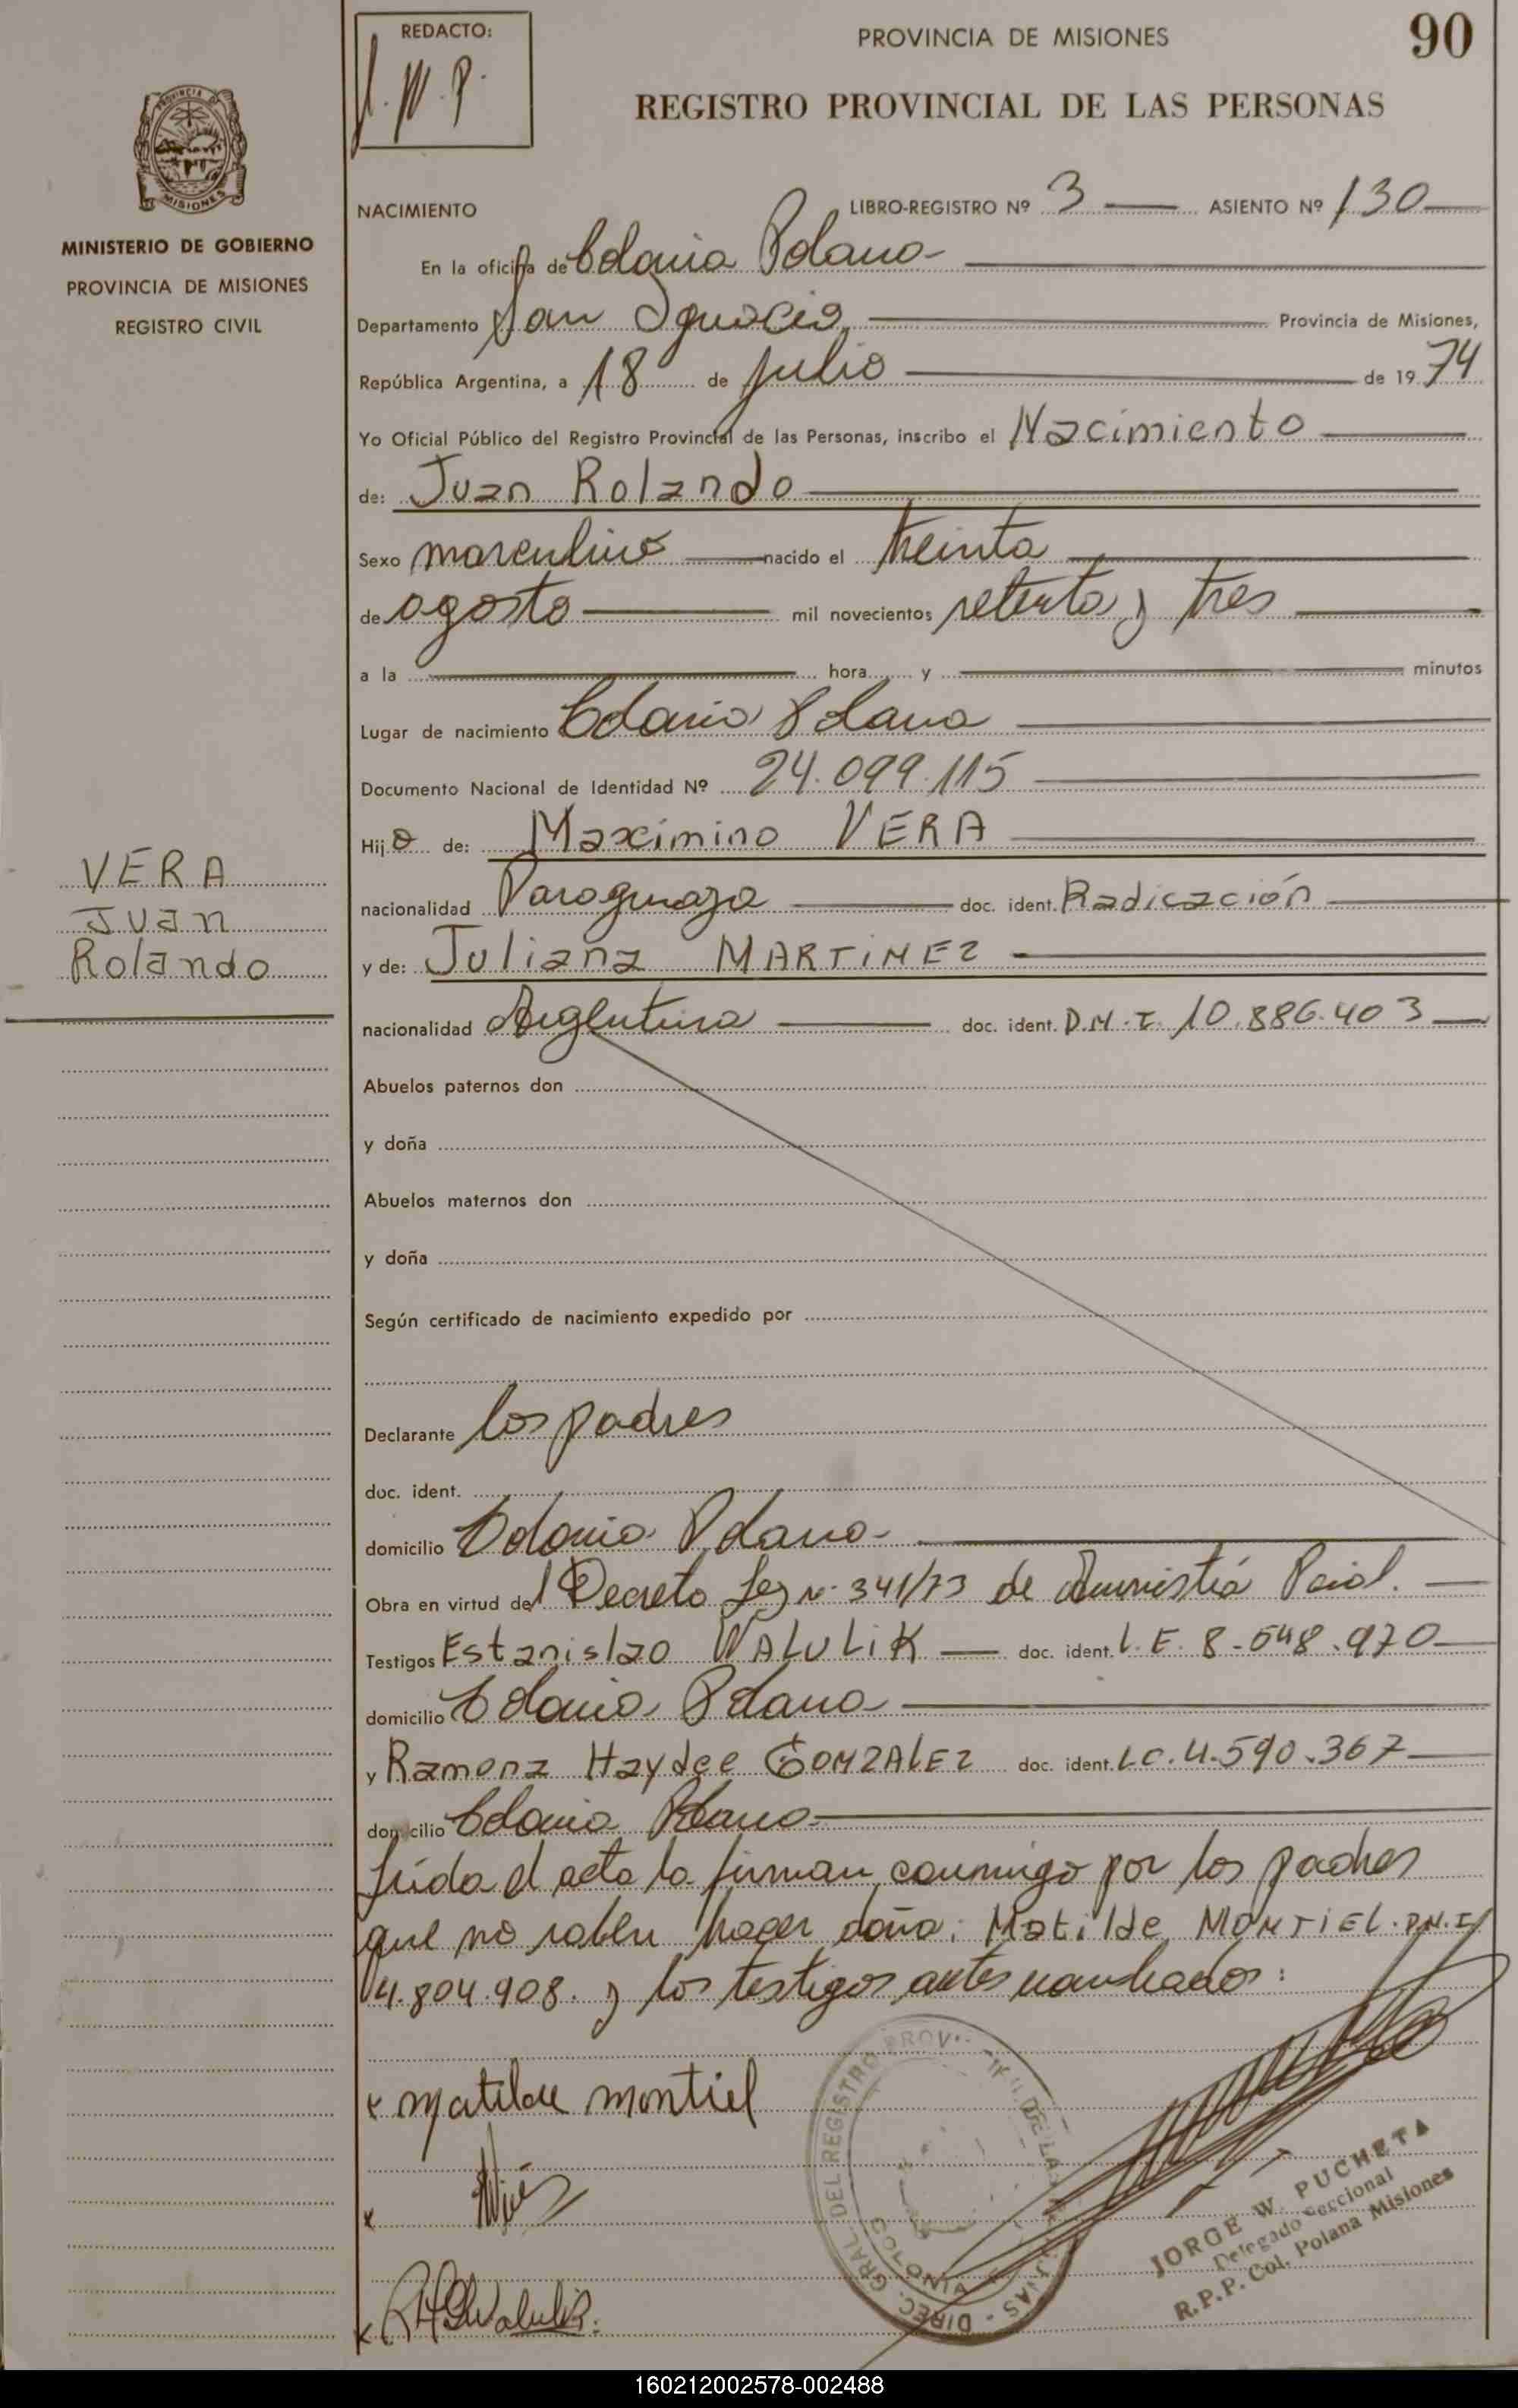 REDACTO:
J. W. P.
PROVINCIA DE MISIONES
90
REGISTRO PROVINCIAL DE LAS PERSONAS
MISIONES
MINISTERIO DE GOBIERNO
PROVINCIA DE MISIONES
REGISTRO CIVIL
NACIMIENTO LIBRO-REGISTRO Nº 3 ASIENTO Nº 130
En la oficina de Colonia Polana
Departamento San Ignacio, Provincia de Misiones,
República Argentina, a 18 de julio de 1974
Yo Oficial Público del Registro Provincial de las Personas, inscribo el Nacimiento
de: Juan Rolando
Sexo masculino nacido el treinta
de agosto mil novecientos setenta y tres
a la hora y minutos
Lugar de nacimiento Colonia Polana
Documento Nacional de Identidad Nº 24.099.115
Hijo de: Maximino VERA
nacionalidad Paraguaya doc. ident. Radicación
VERA
Juan
Rolando
y de: Juliana MARTINEZ
nacionalidad Argentina doc. ident. D.N.I. 10.886.403
Abuelos paternos don
y doña
Abuelos maternos don
y doña
Según certificado de nacimiento expedido por
Declarante los padres
doc. ident.
domicilio Colonia Polana
Obra en virtud del Decreto Ley Nº 341/73 de Amnistía
Testigos Estanislao WALULIK doc. ident. L.E. 8.548.970
domicilio Colonia Polana
y Ramona Haydee GONZALEZ doc. ident. L.C. 4.590.367
domicilio Colonia Polana
Leída el acta la firman conmigo por los padres
que no saben hacer doña: Matilde MONTIEL. D.N.I.
4.804.908. y los testigos antes nombrados:
x Matilde Montiel
x
x
DIREC. GRAL. DEL REGISTRO PROV. DE LAS
COLONIA
JORGE W. PUCHETA
Delegado Seccional
R.P.P. Col. Polana Misiones
160212002578-002488